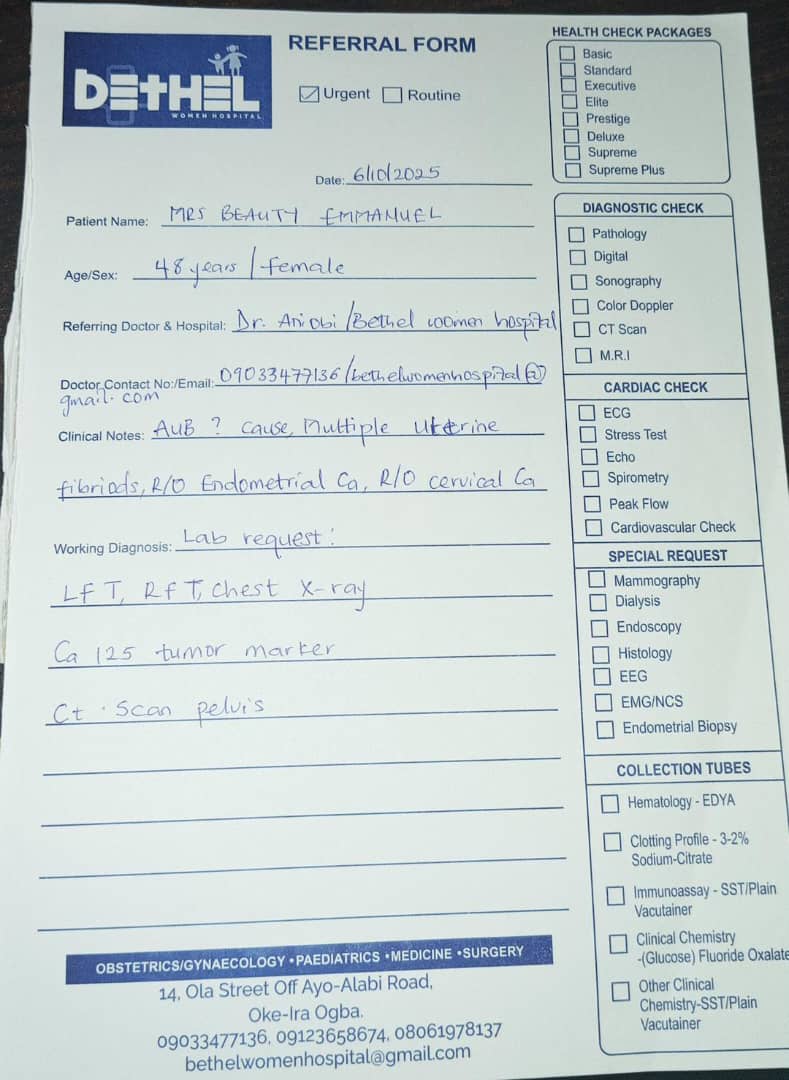 BETHEL
WOMEN HOSPITAL
REFERRAL FORM
Urgent Routine
Date: 6/10/2025
Patient Name: MRS BEAUTY EMMANUEL
Age/Sex: 48 years / female
Referring Doctor & Hospital: Dr. Aniobi / Bethel women hospital
Doctor Contact No:/Email: 09033477136 / bethelwomenhospital@
gmail.com
Clinical Notes: AUB ? cause, Multiple Uterine
fibriods, R/O Endometrial Ca, R/O cervical Ca
Working Diagnosis: Lab request:
LFT, RFT, Chest X-ray
Ca 125 tumor marker
Ct. Scan pelvis
OBSTETRICS/GYNAECOLOGY •PAEDIATRICS •MEDICINE •SURGERY
14, Ola Street Off Ayo-Alabi Road,
Oke-Ira Ogba.
09033477136, 09123658674, 08061978137
bethelwomenhospital@gmail.com
HEALTH CHECK PACKAGES
Basic
Standard
Executive
Elite
Prestige
Deluxe
Supreme
Supreme Plus
DIAGNOSTIC CHECK
Pathology
Digital
Sonography
Color Doppler
CT Scan
M.R.I
CARDIAC CHECK
ECG
Stress Test
Echo
Spirometry
Peak Flow
Cardiovascular Check
SPECIAL REQUEST
Mammography
Dialysis
Endoscopy
Histology
EEG
EMG/NCS
Endometrial Biopsy
COLLECTION TUBES
Hematology - EDYA
Clotting Profile - 3-2%
Sodium-Citrate
Immunoassay - SST/Plain
Vacutainer
Clinical Chemistry
-(Glucose) Fluoride Oxalate
Other Clinical
Chemistry-SST/Plain
Vacutainer